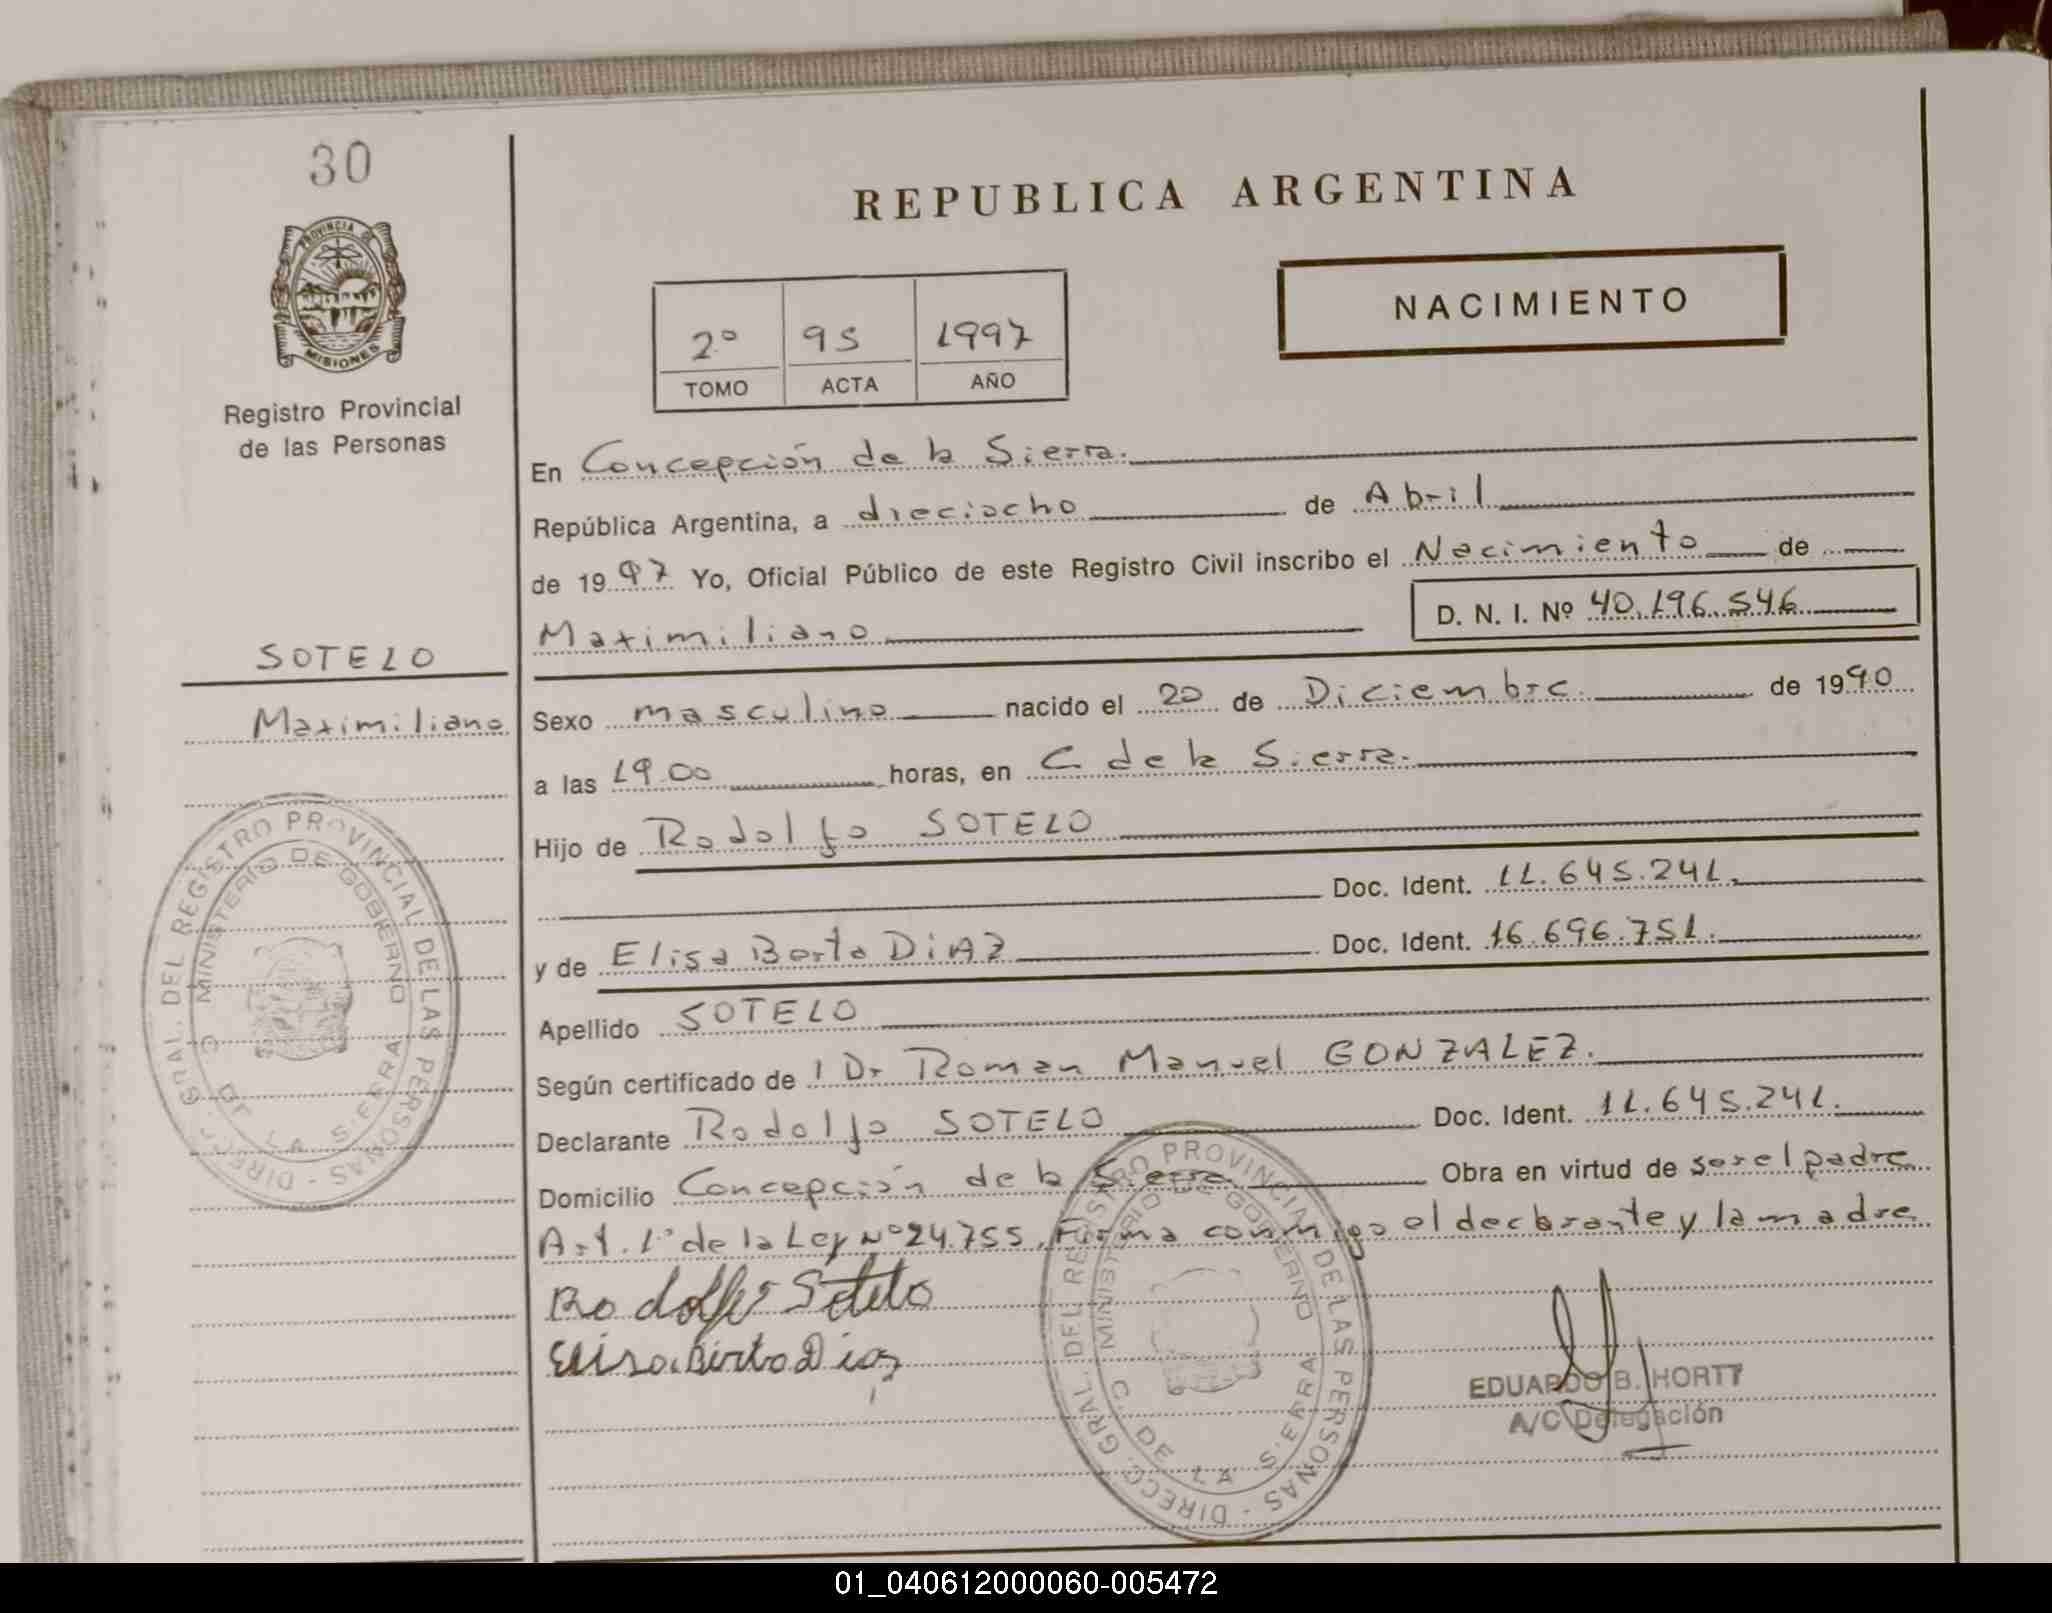 30
PROVINCIA DE
MISIONES
Registro Provincial
de las Personas
SOTELO
Maximiliano
DIRECC. GRAL. DEL REGISTRO PROVINCIAL DE LAS PERSONAS
MINISTERIO DE GOBIERNO
C. DE LA SIERRA
REPUBLICA ARGENTINA
NACIMIENTO
2º 95 1997
TOMO ACTA AÑO
En Concepción de la Sierra.
República Argentina, a dieciocho de Abril
de 1997 Yo, Oficial Público de este Registro Civil inscribo el Nacimiento de
Maximiliano D. N. I. Nº 40.196.546
Sexo masculino nacido el 20 de Diciembre de 1990
a las 19.00 horas, en C. de la Sierra.
Hijo de Rodolfo SOTELO
Doc. Ident. 11.645.241.
y de Elisa Berta DiAZ Doc. Ident. 16.696.751.
Apellido SOTELO
Según certificado de l Dr Roman Manuel GONZALEZ.
Declarante Rodolfo SOTELO Doc. Ident. 11.645.241.
Domicilio Concepción de la Sierra Obra en virtud de ser el padre
Art. 1º de la Ley Nº 24.755, Firma conmigo el declarante y la madre
Rodolfo Sotelo
Elisa Berta Diaz
DIRECC. GRAL. DEL REGISTRO PROVINCIAL DE LAS PERSONAS
MINISTERIO DE GOBIERNO
C. DE LA SIERRA
EDUARDO B. HORTT
A/C Delegación
01_040612000060-005472